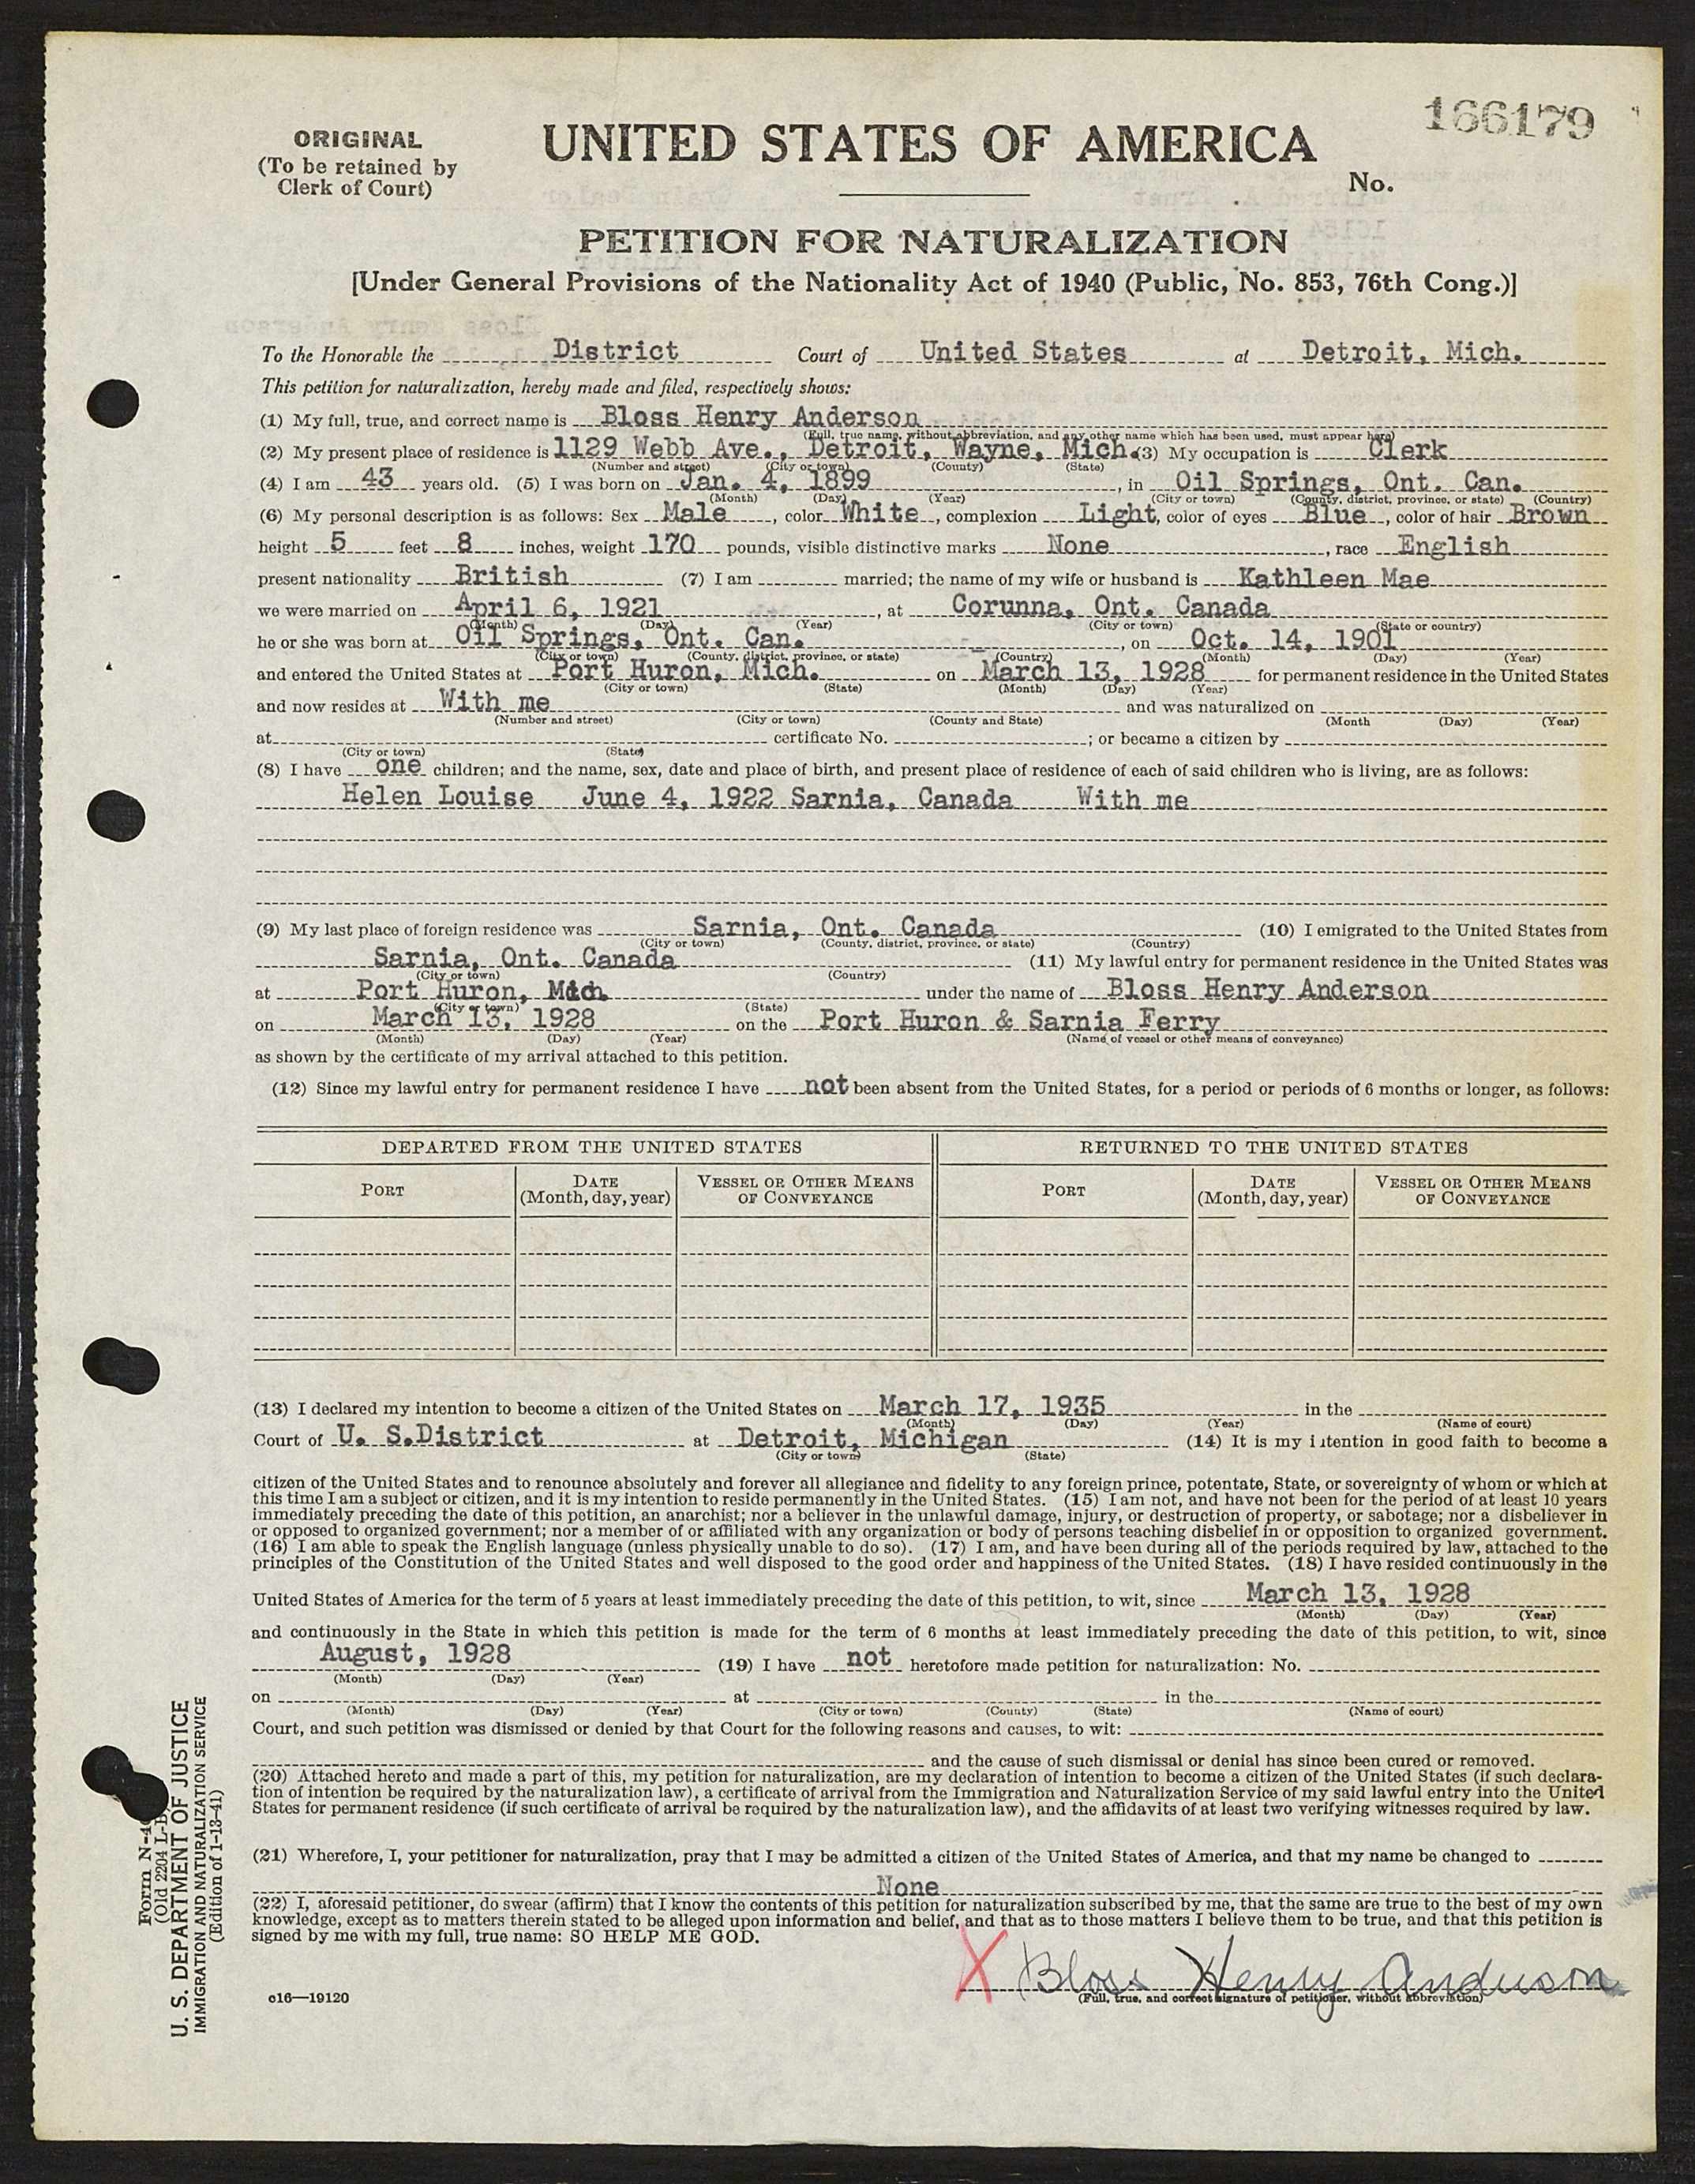 166179
ORIGINAL
(To be retained by
Clerk of Court)
UNITED STATES OF AMERICA
No.
PETITION FOR NATURALIZATION
[Under General Provisions of the Nationality Act of 1940 (Public, No. 853, 76th Cong.)]
To the Honorable the District Court of United States at Detroit, Mich.
This petition for naturalization, hereby made and filed, respectively shows:
(1) My full, true, and correct name is Bloss Henry Anderson
(Full, true name, without abbreviation, and any other name which has been used, must appear here)
(2) My present place of residence is 1129 Webb Ave., Detroit, Wayne, Mich. (3) My occupation is Clerk
(Number and street) (City or town) (County) (State)
(4) I am 43 years old. (5) I was born on Jan. 4, 1899, in Oil Springs, Ont. Can.
(Month) (Day) (Year) (City or town) (County, district, province, or state) (Country)
(6) My personal description is as follows: Sex Male, color White, complexion Light, color of eyes Blue, color of hair Brown
height 5 feet 8 inches, weight 170 pounds, visible distinctive marks None, race English
present nationality British (7) I am married; the name of my wife or husband is Kathleen Mae
we were married on April 6, 1921, at Corunna, Ont. Canada
(Month) (Day) (Year) (City or town) (State or country)
he or she was born at Oil Springs, Ont. Can., on Oct. 14, 1901
(City or town) (County, district, province, or state) (Country) (Month) (Day) (Year)
and entered the United States at Port Huron, Mich. on March 13, 1928 for permanent residence in the United States
(City or town) (State) (Month) (Day) (Year)
and now resides at With me and was naturalized on
(Number and street) (City or town) (County and State) (Month (Day) (Year)
at certificate No. ; or became a citizen by
(City or town) (State)
(8) I have one children; and the name, sex, date and place of birth, and present place of residence of each of said children who is living, are as follows:
Helen Louise June 4, 1922 Sarnia, Canada With me
(9) My last place of foreign residence was Sarnia, Ont. Canada (10) I emigrated to the United States from
(City or town) (County, district, province, or state) (Country)
Sarnia, Ont. Canada (11) My lawful entry for permanent residence in the United States was
(City or town) (Country)
at Port Huron, Mich. under the name of Bloss Henry Anderson
(City or town) (State)
on March 13, 1928 on the Port Huron & Sarnia Ferry
(Month) (Day) (Year) (Name of vessel or other means of conveyance)
as shown by the certificate of my arrival attached to this petition.
(12) Since my lawful entry for permanent residence I have not been absent from the United States, for a period or periods of 6 months or longer, as follows:
DEPARTED FROM THE UNITED STATES RETURNED TO THE UNITED STATES
PORT DATE (Month, day, year) VESSEL OR OTHER MEANS OF CONVEYANCE PORT DATE (Month, day, year) VESSEL OR OTHER MEANS OF CONVEYANCE
(13) I declared my intention to become a citizen of the United States on March 17, 1935 in the
(Month) (Day) (Year) (Name of court)
Court of U. S.District at Detroit, Michigan (14) It is my intention in good faith to become a
(City or town) (State)
citizen of the United States and to renounce absolutely and forever all allegiance and fidelity to any foreign prince, potentate, State, or sovereignty of whom or which at
this time I am a subject or citizen, and it is my intention to reside permanently in the United States. (15) I am not, and have not been for the period of at least 10 years
immediately preceding the date of this petition, an anarchist; nor a believer in the unlawful damage, injury, or destruction of property, or sabotage; nor a disbeliever in
or opposed to organized government; nor a member of or affiliated with any organization or body of persons teaching disbelief in or opposition to organized government.
(16) I am able to speak the English language (unless physically unable to do so). (17) I am, and have been during all of the periods required by law, attached to the
principles of the Constitution of the United States and well disposed to the good order and happiness of the United States. (18) I have resided continuously in the
United States of America for the term of 5 years at least immediately preceding the date of this petition, to wit, since March 13, 1928
(Month) (Day) (Year)
and continuously in the State in which this petition is made for the term of 6 months at least immediately preceding the date of this petition, to wit, since
August, 1928 (19) I have not heretofore made petition for naturalization: No.
(Month) (Day) (Year)
on at in the
(Month) (Day) (Year) (City or town) (County) (State) (Name of court)
Court, and such petition was dismissed or denied by that Court for the following reasons and causes, to wit:
and the cause of such dismissal or denial has since been cured or removed.
(20) Attached hereto and made a part of this, my petition for naturalization, are my declaration of intention to become a citizen of the United States (if such declara-
tion of intention be required by the naturalization law), a certificate of arrival from the Immigration and Naturalization Service of my said lawful entry into the United
States for permanent residence (if such certificate of arrival be required by the naturalization law), and the affidavits of at least two verifying witnesses required by law.
(21) Wherefore, I, your petitioner for naturalization, pray that I may be admitted a citizen of the United States of America, and that my name be changed to
None
(22) I, aforesaid petitioner, do swear (affirm) that I know the contents of this petition for naturalization subscribed by me, that the same are true to the best of my own
knowledge, except as to matters therein stated to be alleged upon information and belief, and that as to those matters I believe them to be true, and that this petition is
signed by me with my full, true name: SO HELP ME GOD.
X Bloss Henry Anderson
(Full, true, and correct signature of petitioner, without abbreviation)
c16—19120
Form N-4
(Old 2204 L-
U. S. DEPARTMENT OF JUSTICE
IMMIGRATION AND NATURALIZATION SERVICE
(Edition of 1-13-41)